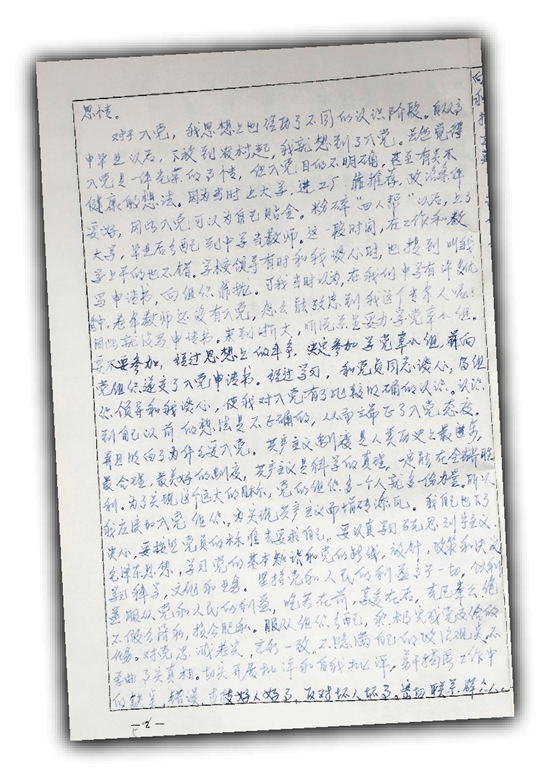 思情。
对于入党，我思想上也经历了不同的认识阶段。自从高
中毕业以后，下放到农村起，我就想到了入党。总觉得
入党是一件光荣的事情，但入党目的不明确，甚至有关不
健康的想法。因为当时上大学，进工厂靠推荐，政治条件
要好，因此入党可以为自己贴金。粉碎“四人帮”以后，上了
大学，毕业后分配到中学当教师。这一段时间，在工作和教
学上干的也不错，学校领导有时和我谈心时，也提到叫我
写申请书，向组织靠拢。可我当时认为，在我们中学有许多优
老年教师还没有入党，怎么能考虑到我这个青年人呢
因此就没写申请书。来到浙大，听说总是要办学党章小组，
要不要参加，经过思想上的斗争，决定参加学党章小组，并向
党组织递交了入党申请书。经过学习，和党员同志谈心，
组织领导和我谈心，使我对入党有了比较明确的认识。认识
到自己以前的想法是不正确的，从而端正了入党态度。
并且明白了为什么要入党。共产主义制度是人类历史上最进步，
最合理，最美好的制度，共产主义是科学的真理，一定能在全世界胜
利。为了实现这个远大的目标，党的组织多一个人就多一份力量，所以
我应该加入党组织，为实现共产主义而增砖添瓦。我自己也下了
决心，要按照党员的标准去要求自己，要认真学习马克思列宁主义
毛泽东思想，学习党的基本知识和党的路线，方针，政策和决议
学习科学，文化和业务。坚持党和人民的利益高于一切，个人利
益服从党和人民的利益，吃苦在前，享受在后，克己奉公，绝
不假公济私，损公肥私。服从组织分配，积极完成党交给的
任务。对党忠诚老实，言行一致，不隐瞒自己的政治观点，不
歪曲事实真相。切实开展批评和自我批评，工作中
的缺点，错误，支持好人好事，反对坏人坏事。密切联系群众，